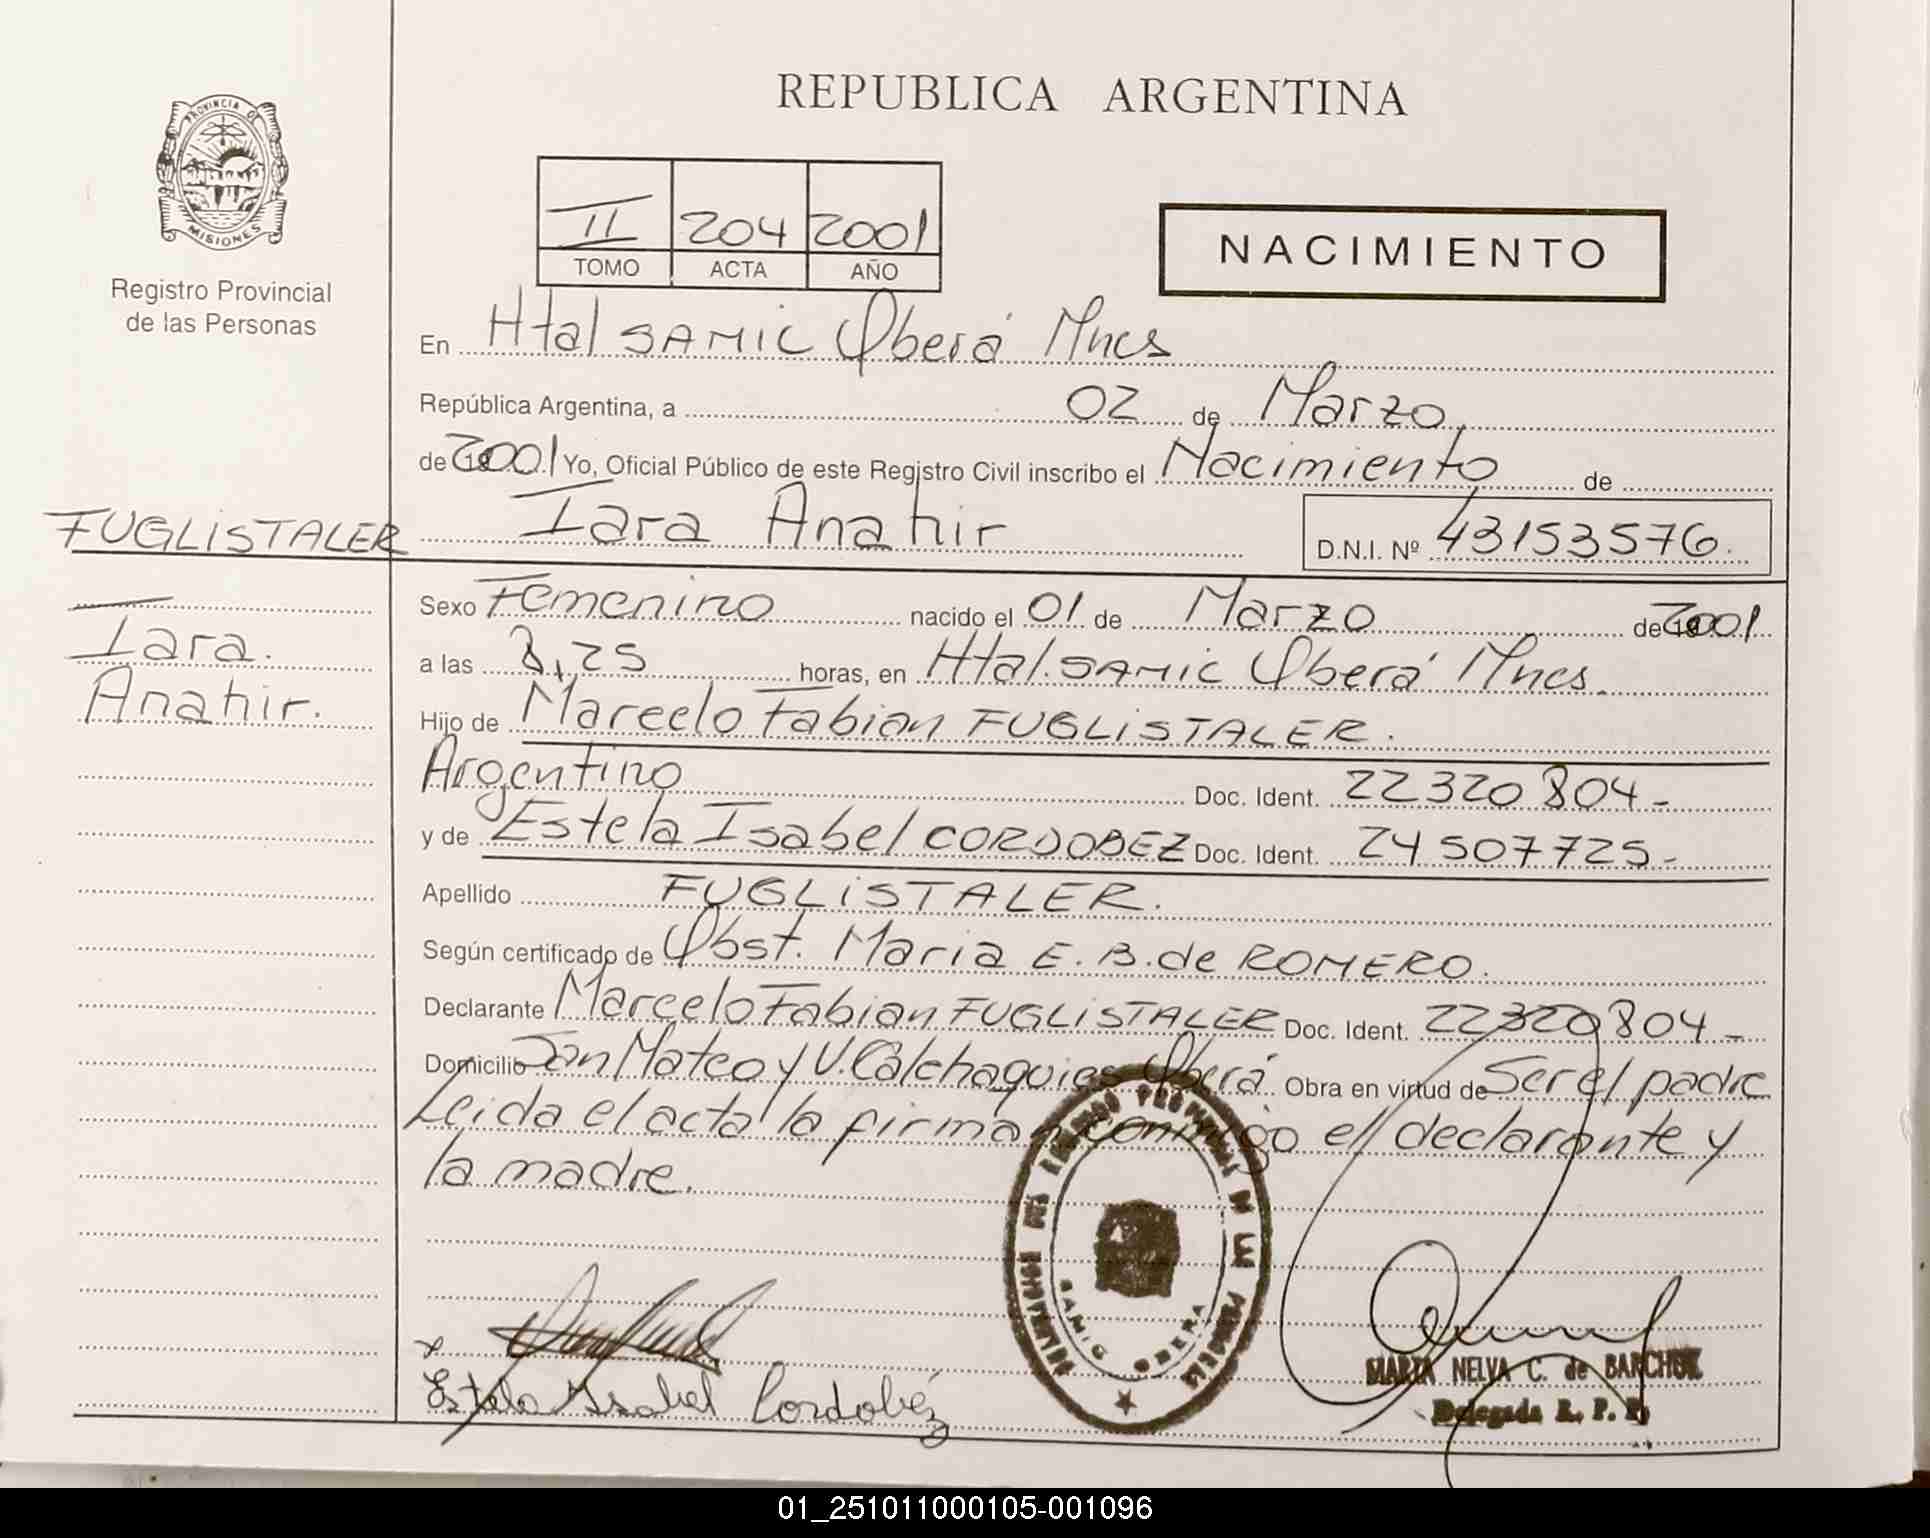 REPUBLICA ARGENTINA
PROVINCIA DE
MISIONES
Registro Provincial
de las Personas
II 204 2001
TOMO ACTA AÑO
NACIMIENTO
En Htal SAMIC Oberá Mnes
República Argentina, a 02 de Marzo
de 2001 Yo, Oficial Público de este Registro Civil inscribo el Nacimiento de
FUGLISTALER Iara Anahir D.N.I. Nº 43153576.
Iara.
Anahir.
Sexo Femenino nacido el 01 de Marzo de 2001
a las 8,25 horas, en Htal. SAMIC Oberá Mnes.
Hijo de Marcelo Fabian FUGLISTALER.
Argentino Doc. Ident. 22320804-
y de Estela Isabel CORDOBEZ Doc. Ident. 24507725-
Apellido FUGLISTALER.
Según certificado de Obst. Maria E. B. de ROMERO.
Declarante Marcelo Fabian FUGLISTALER Doc. Ident. 22320804-
Domicilio San Mateo y V. Calchaquies Oberá Obra en virtud de Ser el padre
Leida el acta la firman conmigo el declarante y
la madre.
DELEGACION DEL REGISTRO PROVINCIAL DE LAS PERSONAS
SAMIC OBERA
Estela Isabel Cordobéz
MARTA NELVA C. de BARCHUK
Delegada R. P. P.
01_251011000105-001096